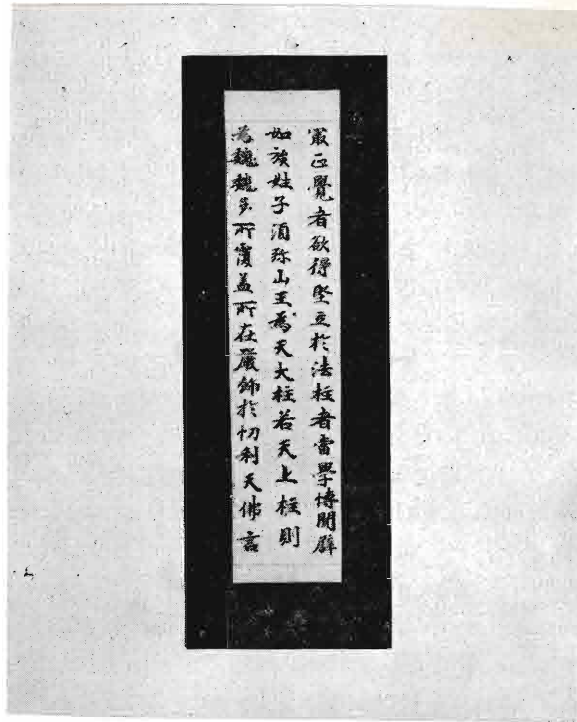 寂正覺者欲得堅立於法柱者當學愽聞辟
如族姓子須弥山王為天大柱若天上柱則
為魏魏多所覆盖所在嚴飾於忉利天佛言